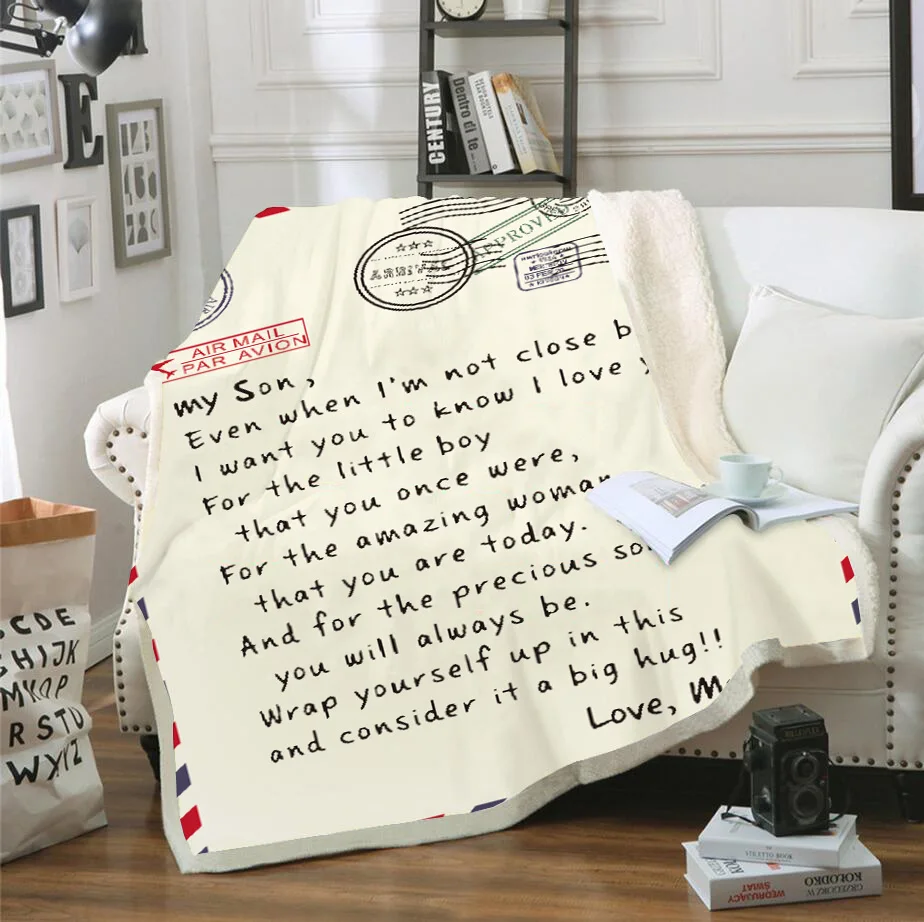 CENTURY
Dentro di te
E
APPROVED
ARRIVAL
AIR MAIL
PAR AVION
my Son,
Even when I'm not close b
I want you to know I love y
For the little boy
that you once were,
For the amazing woman
that you are today.
And for the precious so
you will always be.
Wrap yourself up in this
and consider it a big hug!!
Love, M
CDE
HIJK
MNOP
RSTU
WXYZ
STILETTO BOOK
WĘDRUJĄCY
ŚWIAT
GRZEGORZ W
KOŁODKO